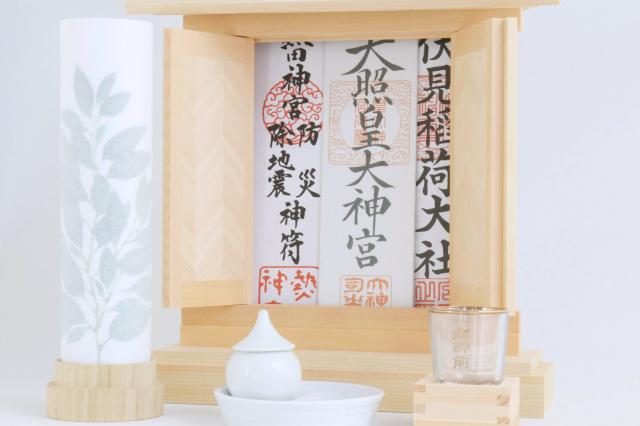 伏見稲荷大社
天照皇大神宮
熱田神宮
防災
除地震
神符
御神前